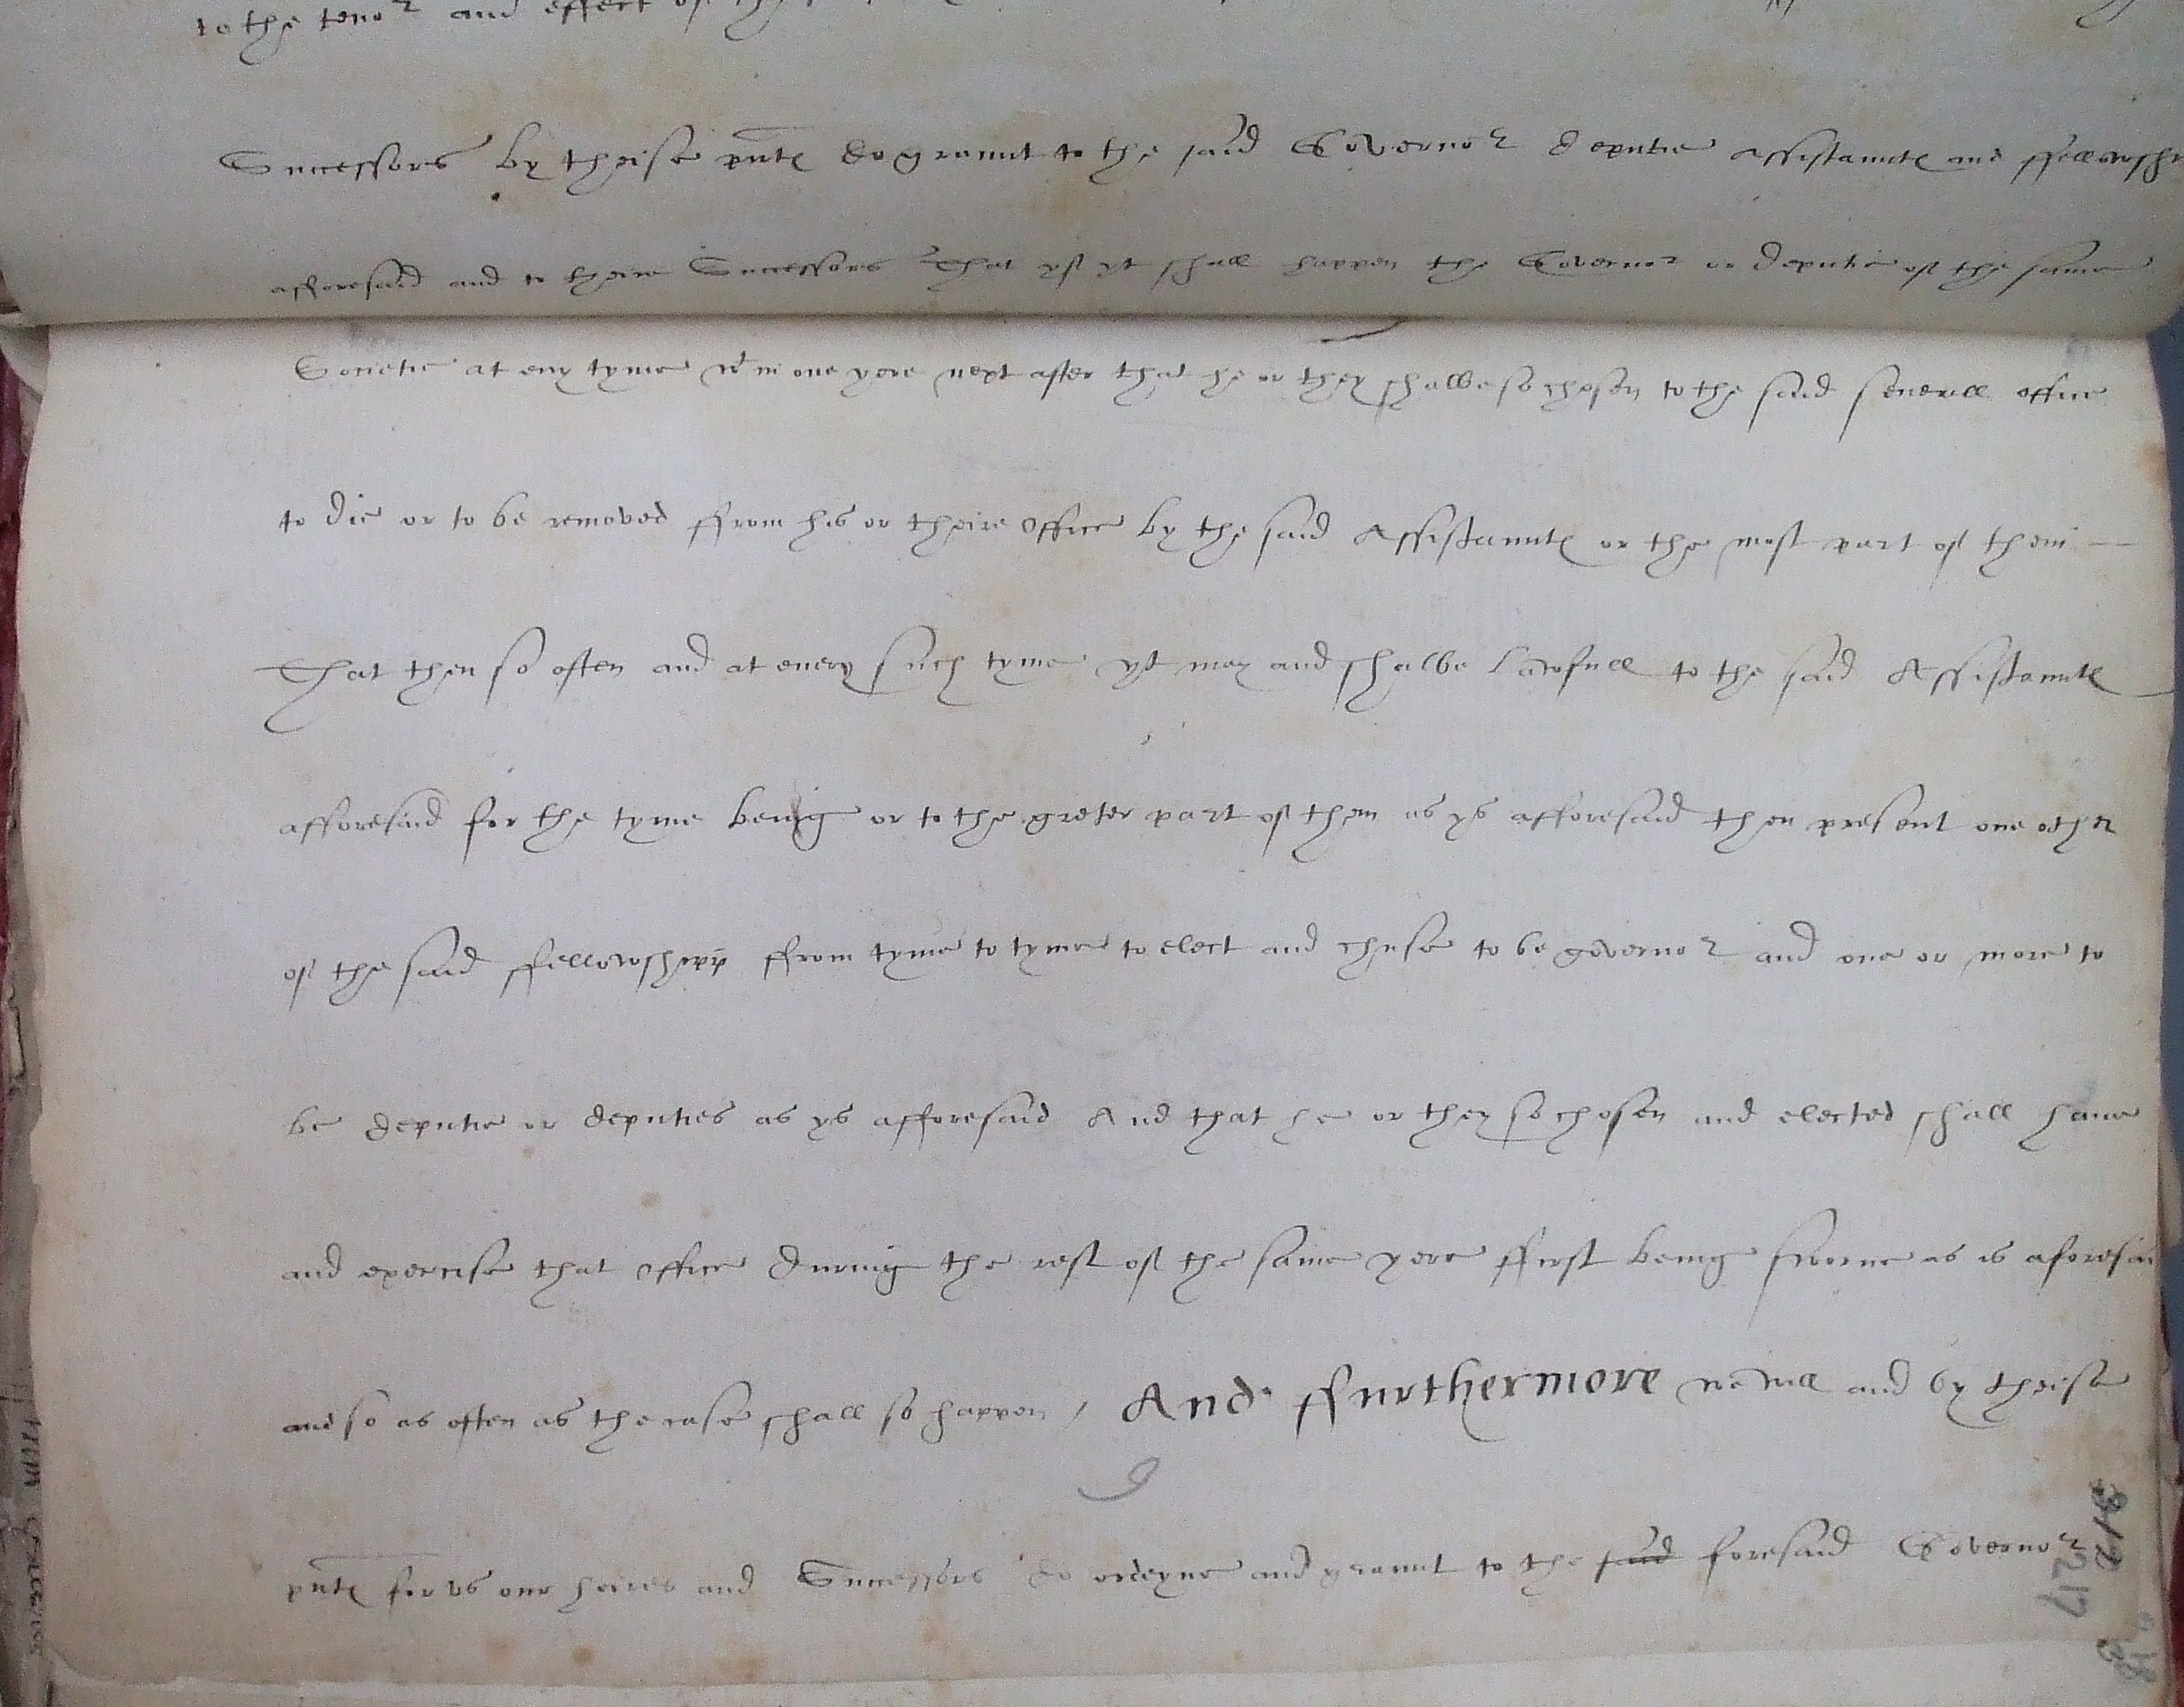 to the tenor and effect of
Successors by theise pnte do graunt to the said Governor deputie assistaunte and ffellowshi
afforesaid and to theire Successors That yf yt shall happen the Governor or deputie of the same
Societie at eny tyme wt in one yere next after that he or they shalbe so chosen to the said seuerall office
to die or to be removed ffrom his or theire office by the said Assistaunte or the most part of them
That then so often and at euery such tyme yt may and shalbe lawfull to the said Assistaunte
afforesaid for the tyme being or to the greter part of them as ys afforesaid then present one other
of the said ffellowshipp ffrom tyme to tyme to elect and chuse to be governor and one or more to
be deputie or deputies as ys afforesaid And that he or they so chosen and elected shall haue
and exercise that office during the rest of the same yere ffirst being sworne as is aforesai
and so as often as the case shall so happen / And ffurthermore we will and by theise
pnte for vs our heires and Successors do ordeyne and graunt to the said foresaid Governor
217